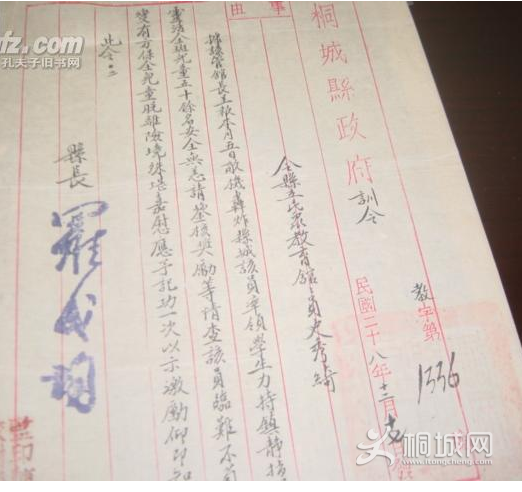 事由
桐城縣政府訓令
教字第1336
民國二十八年十二月
令縣立民眾教育館館員史秀綺
據該管館長王報本月五日敵機轟炸縣城該員率領學生力持鎮靜
靈活全與兒童五十餘名安全無恙請鑒核獎勵等情查該員臨難不苟
變有方保全兒童脫離險境殊堪嘉慰應予記功一次以示激勵仰即知
此令
縣長羅成均
fz.com
孔夫子旧书网
桐城网
www.itongcheng.com